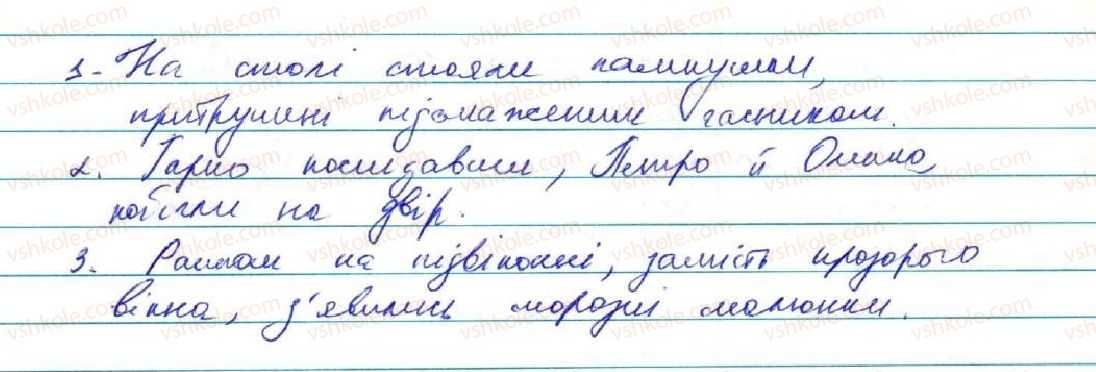 1. На столі стояли пампушки,
притрушені підсмаженим часником.
2. Гарно поснідавши, Петро й Оксана
побігли на двір.
3. Рантом на підвіконні, замість прозорого
вікна, з'явились морозні малюнки.